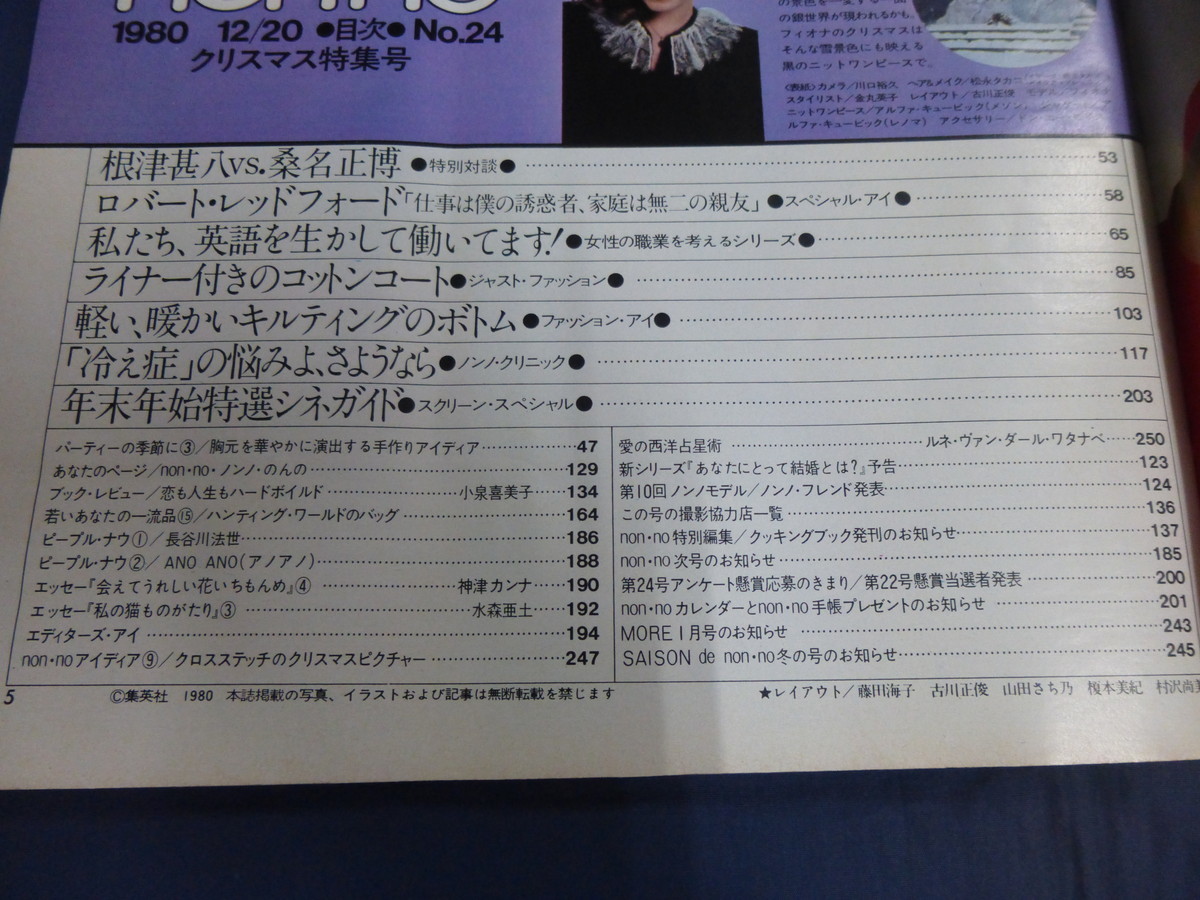 non·no
1980 12/20 ●目次● No.24
クリスマス特集号
の銀世界が現われるかも。
フィオナのクリスマスは
そんな雪景色にも映える
黒のニットワンピースで。
〈表紙〉カメラ／川口裕久 ヘア&メイク／松永タカコ
スタイリスト／金丸英子 レイアウト／古川正俊
ニットワンピース／アルファ・キュービック(メゾン)
ルファ・キュービック(レノマ) アクセサリー／
根津甚八vs.桑名正博 ●特別対談● 53
ロバート・レッドフォード「仕事は僕の誘惑者、家庭は無二の親友」 ●スペシャル・アイ● 58
私たち、英語を生かして働いてます! ●女性の職業を考えるシリーズ● 65
ライナー付きのコットンコート ●ジャスト・ファッション● 85
軽い、暖かいキルティングのボトム ●ファッション・アイ● 103
「冷え症」の悩みよ、さようなら ●ノンノ・クリニック● 117
年末年始特選シネガイド ●スクリーン・スペシャル● 203
パーティーの季節に③／胸元を華やかに演出する手作りアイディア 47
あなたのページ／non·no・ノンノ・のんの 129
ブック・レビュー／恋も人生もハードボイルド 小泉喜美子 134
若いあなたの一流品⑮／ハンティング・ワールドのバッグ 164
ピープル・ナウ①／長谷川法世 186
ピープル・ナウ②／ANO ANO(アノアノ) 188
エッセー『会えてうれしい花いちもんめ』④ 神津カンナ 190
エッセー『私の猫ものがたり』③ 水森亜土 192
エディターズ・アイ 194
non·noアイディア⑨／クロスステッチのクリスマスピクチャー 247
愛の西洋占星術 ルネ・ヴァン・ダール・ワタナベ 250
新シリーズ『あなたにとって結婚とは?』予告 123
第10回 ノンノモデル／ノンノ・フレンド発表 124
この号の撮影協力店一覧 136
non·no特別編集／クッキングブック発刊のお知らせ 137
non·no次号のお知らせ 185
第24号アンケート懸賞応募のきまり／第22号懸賞当選者発表 200
non·noカレンダーとnon·no手帳プレゼントのお知らせ 201
MORE1月号のお知らせ 243
SAISON de non·no冬の号のお知らせ 245
5
©集英社 1980 本誌掲載の写真、イラストおよび記事は無断転載を禁じます
★レイアウト／藤田海子 古川正俊 山田さち乃 榎本美紀 村沢尚美